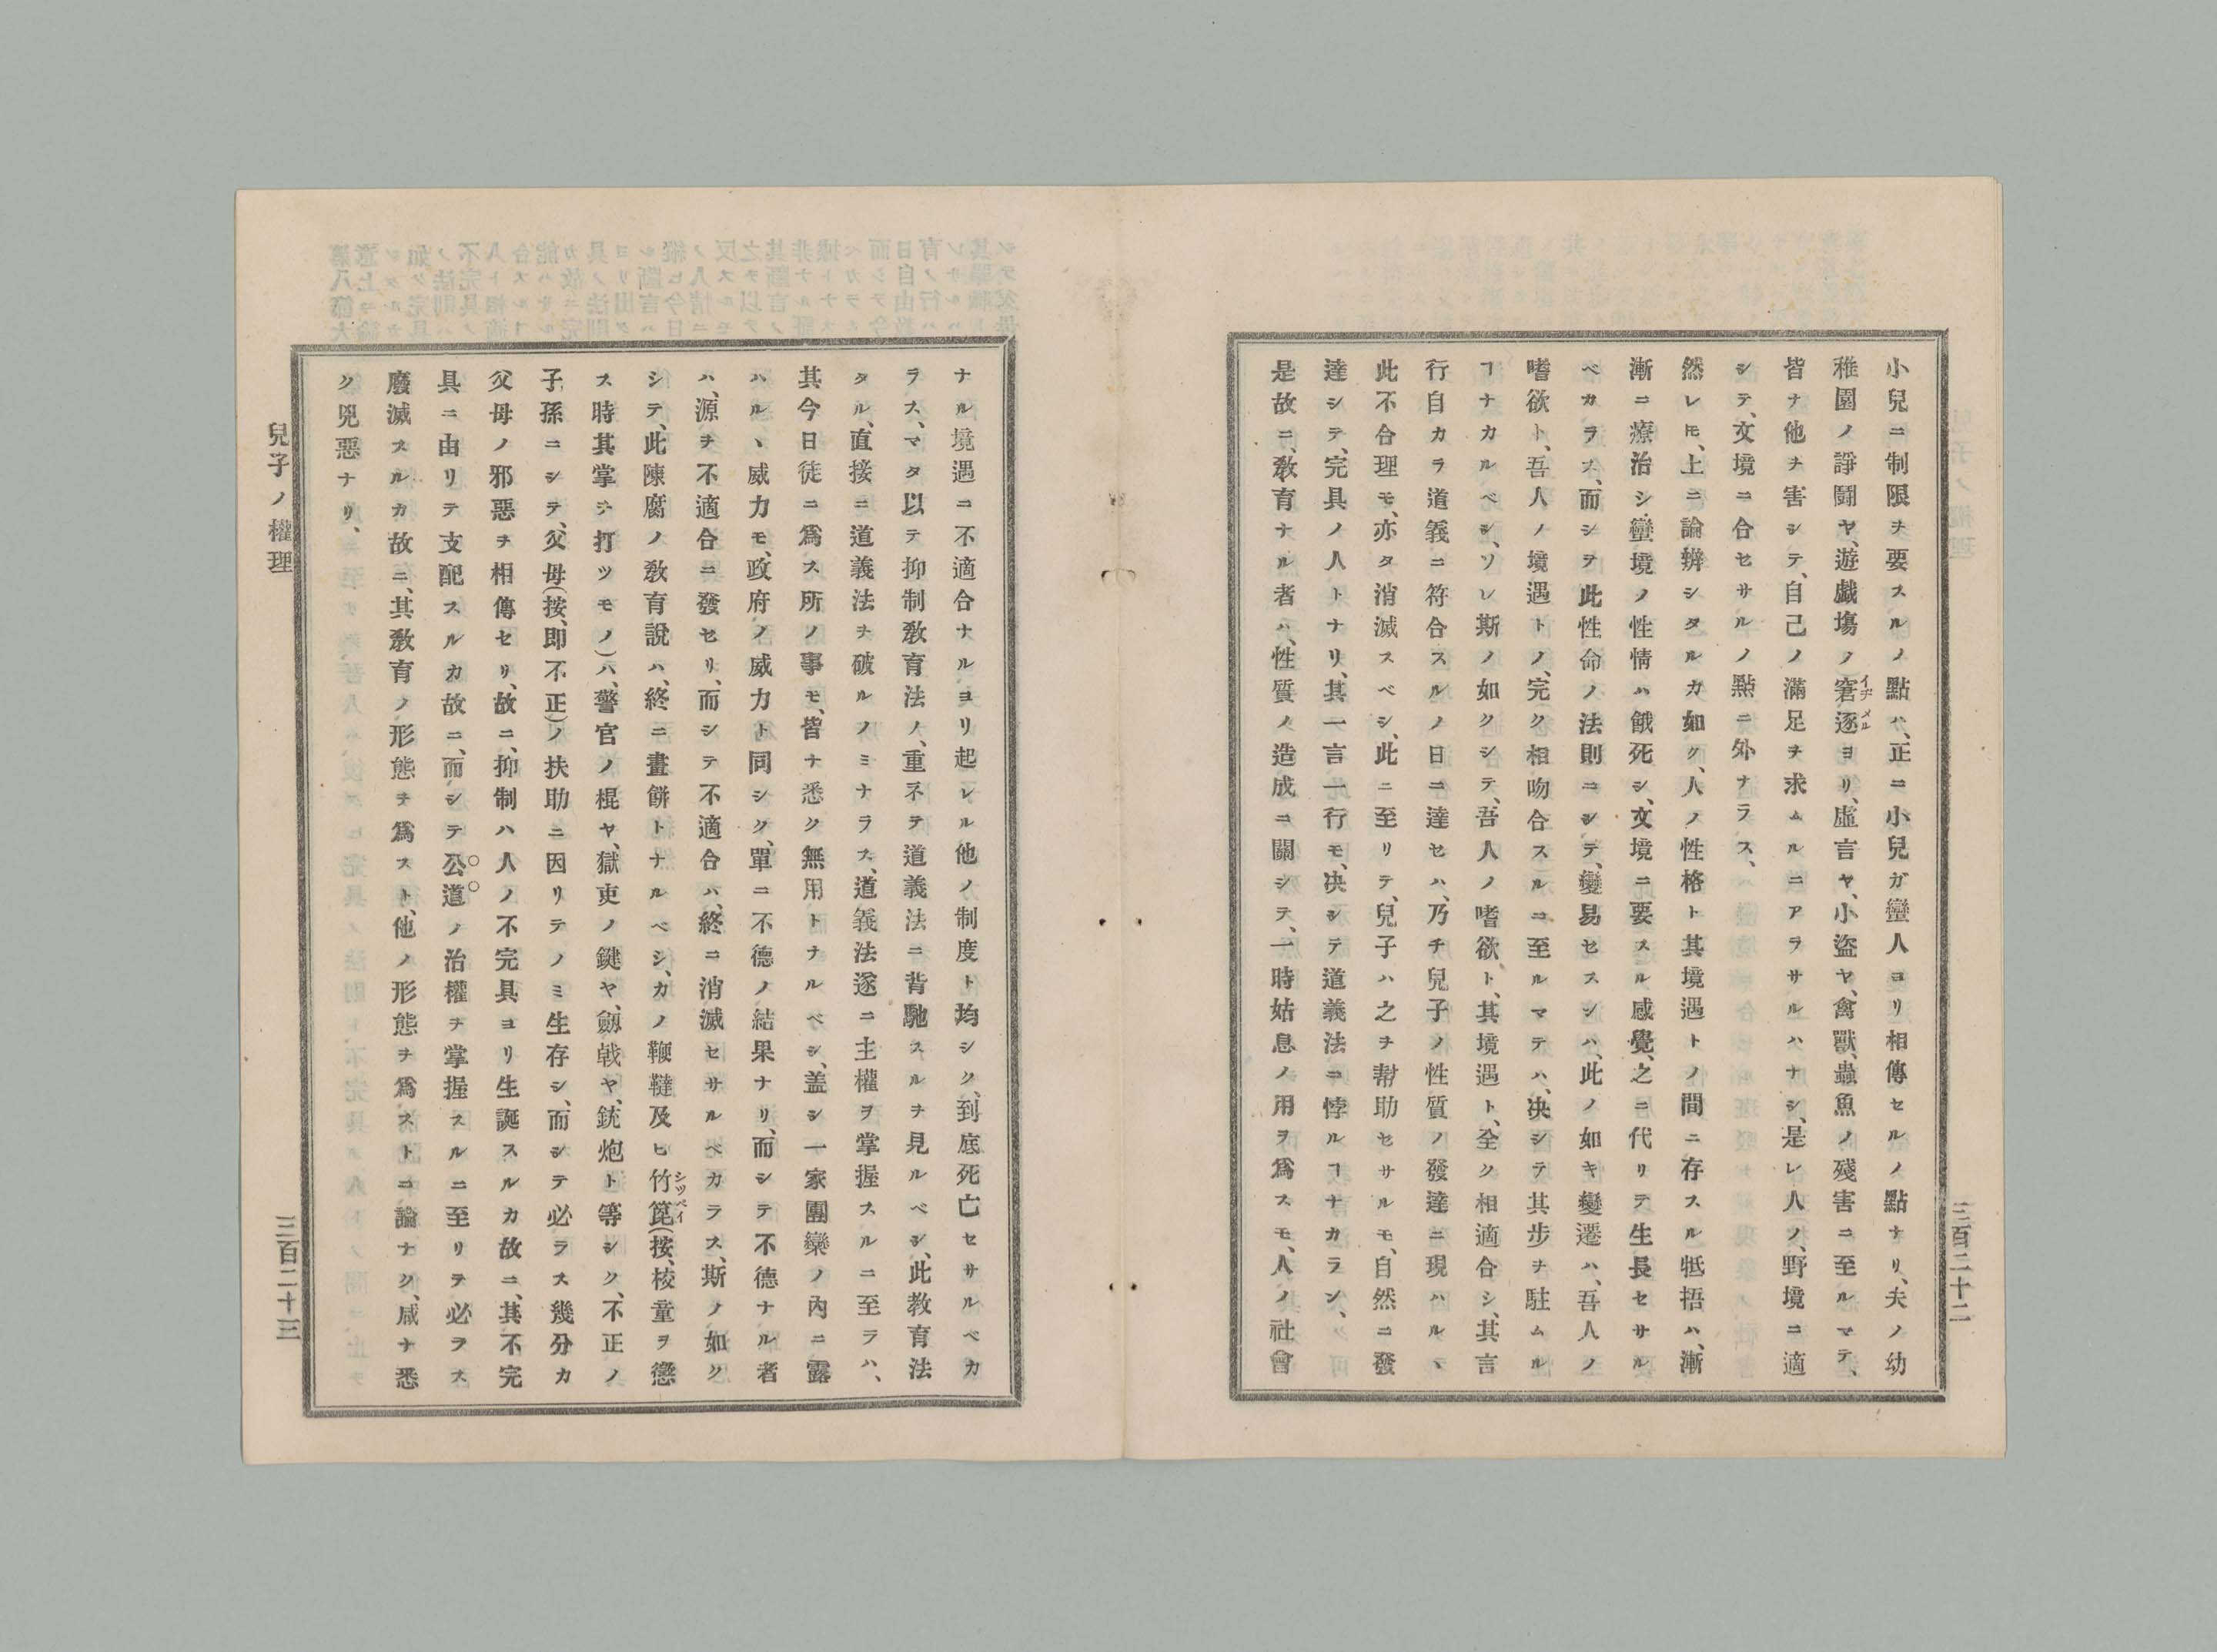 三百二十二
小兒ニ制限ヲ要スルノ點ハ、正ニ小兒ガ蠻人ヨリ相傳セルノ點ナリ、夫ノ幼
稚園ノ諍鬪ヤ、遊戯塲ノ窘逐ヨリ、虛言ヤ、小盜ヤ、禽獸、蟲魚ノ殘害ニ至ルマテ、
イヂメル
皆ナ他ヲ害シテ、自己ノ滿足ヲ求ムルニアラサルハナシ、是レ人ノ、野境ニ適
シテ、文境ニ合セサルノ點ニ外ナラス、
然レ𪜈、上ニ論辨シタルカ如ク、人ノ性格ト其境遇トノ間ニ存スル牴捂ハ、漸
漸ニ療治シ、蠻境ノ性情ハ餓死シ、文境ニ要スル感覺、之ニ代リテ生長セサル
ベカラス、而シテ此性命ノ法則ニシテ、變易セスンハ、此ノ如キ變遷ハ、吾人ノ
嗜欲ト、吾人ノ境遇トノ、完ク相吻合スルニ至ルマテハ、決シテ其步ヲ駐ムル
ヿナカルベシ、ソレ斯ノ如クシテ、吾人ノ嗜欲ト、其境遇ト、全ク相適合シ、其言
行自カラ道義ニ符合スルノ日ニ達セハ、乃チ兒子ノ性質ノ發達ニ現ハルヽ
此不合理モ、亦タ消滅スベシ、此ニ至リテ、兒子ハ之ヲ幇助セサルモ、自然ニ發
達シテ、完具ノ人トナリ、其一言一行モ、決シテ道義法ニ悖ルヿナカラン、
是故ニ、敎育ナル者ハ、性質ノ造成ニ關シテ、一時姑息ノ用ヲ爲スモ、人ノ社會
ナル境遇ニ不適合ナルヨリ起レル他ノ制度ト均シク、到底死亡セサルベカ
ラス、マタ以テ抑制敎育法ノ、重ネテ道義法ニ背馳スルヲ見ルベシ、此敎育法
タル、直接ニ道義法ヲ破ルノミナラス、道義法遂ニ主權ヲ掌握スルニ至ラハ、
其今日徒ニ爲ス所ノ事モ、皆ナ悉ク無用トナルベシ、盖シ一家團欒ノ內ニ露
ハルヽ威力モ、政府ノ威力ト同シク、單ニ不德ノ結果ナリ、而シテ不德ナル者
ハ、源ヲ不適合ニ發セリ、而シテ不適合ハ、終ニ消滅セサルベカラス、斯ノ如ク
シテ、此陳腐ノ敎育說ハ、終ニ畫餠トナルベシ、カノ鞭韃及ヒ竹箆(按、校童ヲ懲
シツペイ
ス時其掌ヲ打ツモノ)ハ、警官ノ棍ヤ、獄吏ノ鍵ヤ、劔戟ヤ、銃炮ト等シク、不正ノ
子孫ニシテ、父母(按、卽不正)ノ扶助ニ因リテノミ生存シ、而シテ必ラス幾分カ
父母ノ邪惡ヲ相傳セリ、故ニ、抑制ハ人ノ不完具ヨリ生誕スルカ故ニ、其不完
具ニ由リテ支配スルカ故ニ、而シテ公道ノ治權ヲ掌握スルニ至リテ必ヲス
廢滅スルカ故ニ、其敎育ノ形態ヲ爲スト、他ノ形態ヲ爲ストニ論ナク、咸ナ悉
ク兇惡ナリ、
兒子ノ權理
三百二十三